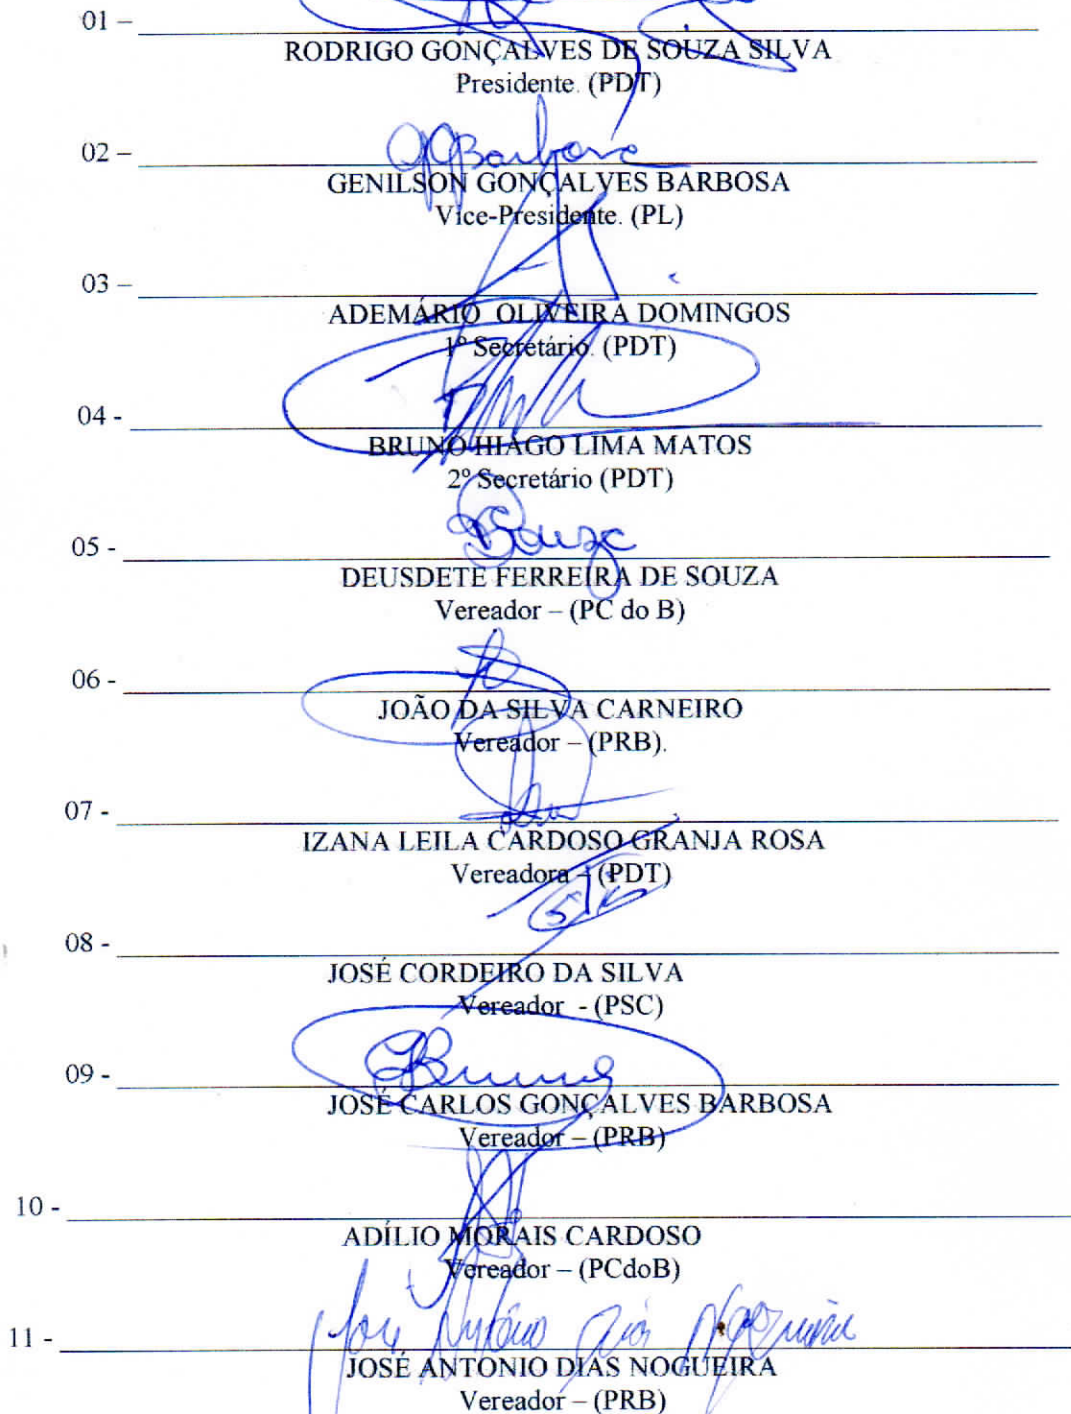 01 –
RODRIGO GONÇALVES DE SOUZA SILVA
Presidente. (PDT)
GBarbosa
02 –
GENILSON GONÇALVES BARBOSA
Vice-Presidente. (PL)
03 –
ADEMÁRIO OLIVEIRA DOMINGOS
1º Secretário. (PDT)
04 -
BRUNO HIAGO LIMA MATOS
2º Secretário (PDT)
DSouza
05 -
DEUSDETE FERREIRA DE SOUZA
Vereador – (PC do B)
06 -
JOÃO DA SILVA CARNEIRO
Vereador – (PRB).
07 -
IZANA LEILA CARDOSO GRANJA ROSA
Vereadora – (PDT)
08 -
JOSÉ CORDEIRO DA SILVA
Vereador - (PSC)
09 -
JOSÉ CARLOS GONÇALVES BARBOSA
Vereador – (PRB)
10 -
ADÍLIO MORAIS CARDOSO
Vereador – (PCdoB)
José Antônio Dias Nogueira
11 -
JOSÉ ANTONIO DIAS NOGUEIRA
Vereador – (PRB)